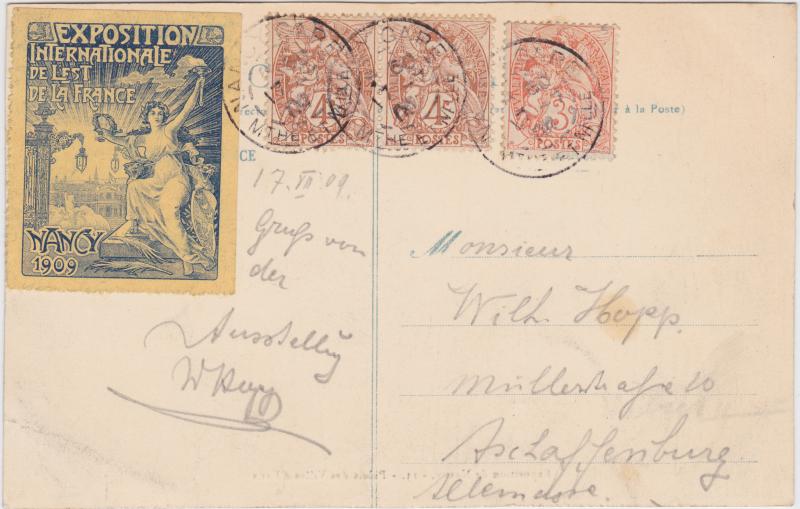 EXPOSITION
INTERNATIONALE
DE L'EST
DE LA FRANCE
NANCY
1909
4 4 3
POSTES POSTES POSTES
à la Poste)
CE
17.VII 09.
Gruß von
der
Ausstellg
WHopp
Monsieur
Wilh. Hopp.
Müllerstraße 10
Aschaffenburg
Allemagne.